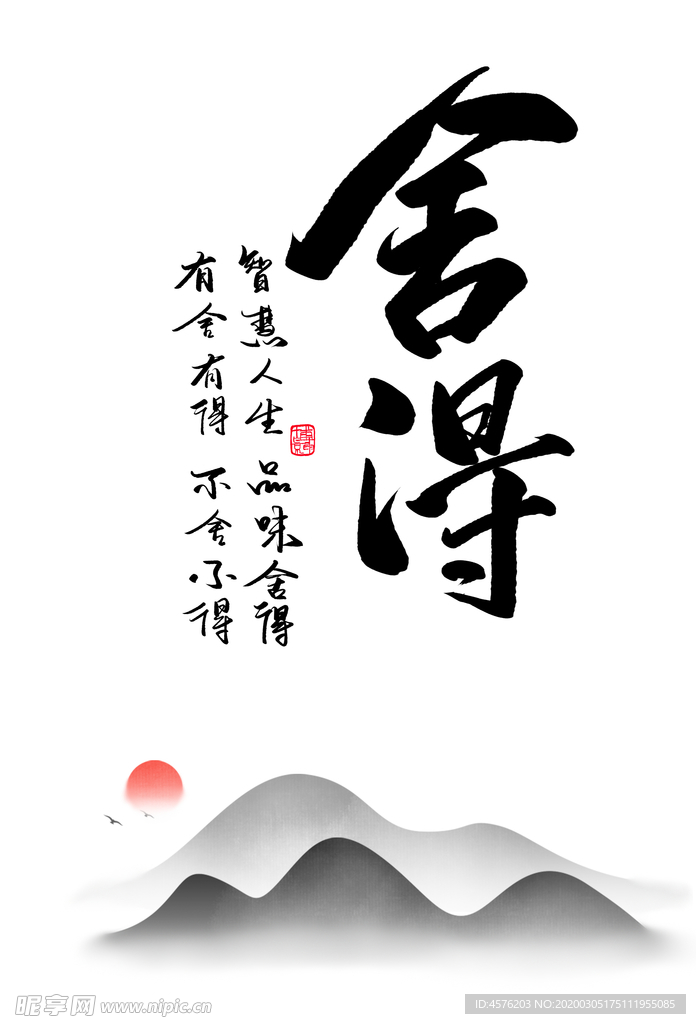 舍得
智慧人生 品味舍得
有舍有得 不舍不得
昵享网 www.nipic.cn
ID:4576203 NO:20200305175111955085